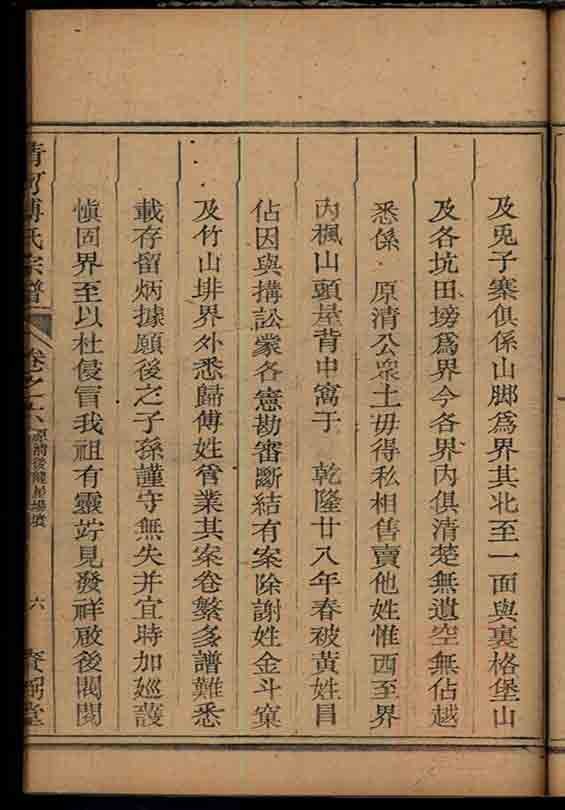 及兎子寨俱係山脚爲界其北至一面與裏格堡山
及各坑田塝爲界今各界内俱清楚無遺空無佔越
悉係 原清公衆土毋得私相售賣他姓惟西至界
内楓山頭屋背中窩于 乾隆廿八年春被黃姓冒
佔因與搆訟蒙各憲勘審斷結有案除謝姓金斗窠
及竹山埂界外悉歸傅姓管業其案卷繁多譜難悉
載存留炳據願後之子孫謹守無失并宜時加廵護
愼固界至以杜侵冒我祖有靈竚見發祥啟後閥閱
清河傅氏宗譜 卷之六 原前後龍屋場墳 六